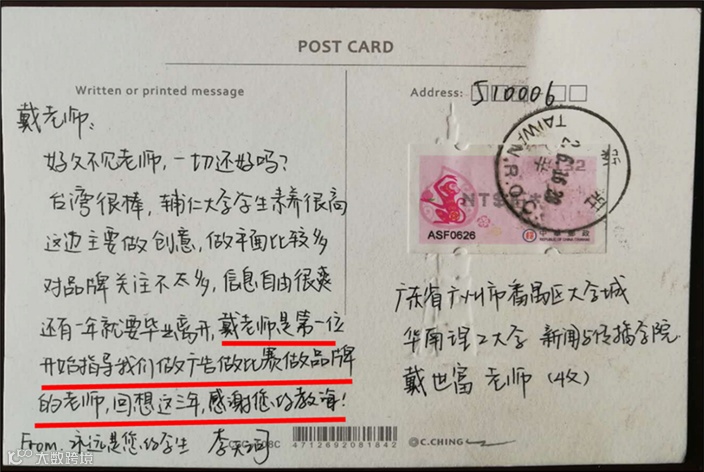 POST CARD
Written or printed message
戴老师:
好久不见老师,一切还好吗?
台湾很棒,辅仁大学学生素养很高
这边主要做创意,做平面比较多
对品牌关注不太多,信息自由很爽
还有一年就要毕业离开,戴老师是第一位
开始指导我们做广告做比赛做品牌
的老师,回想这三年,感谢您的教诲!
From 永远是您的学生 李天
Address:
510006
NT$
32
ASF0626
中華郵政
REPUBLIC OF CHINA (TAIWAN)
TAIWAN, R.O.C.
广东省广州市番禺区大学城
华南理工大学 新闻与传播学院
戴世富 老师 (收)
4712692081842
©C.CHING
大数跨境